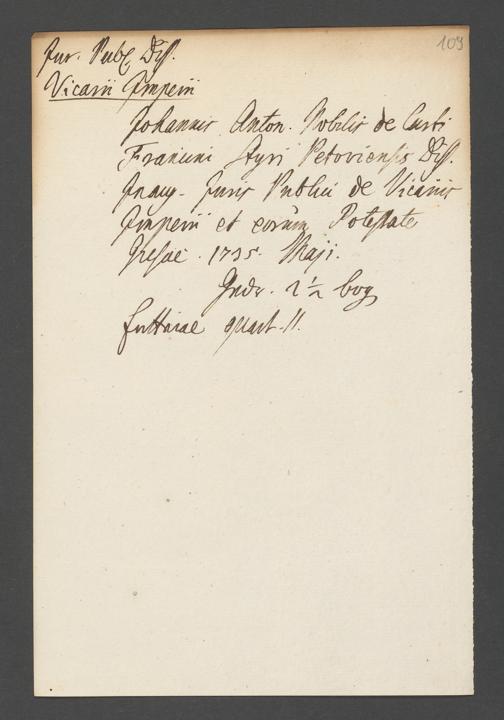 109
Jur. Publ. Diss.
Vicarii Imperii
Johannis Anton. Nobilis de Curti
Francini Styri Petoviensis Diss.
Inaug. Juris Publici de Vicariis
Imperii et eorum Potestate
Gressae. 1735. Maji.
2 ½ bog
quart. 11.